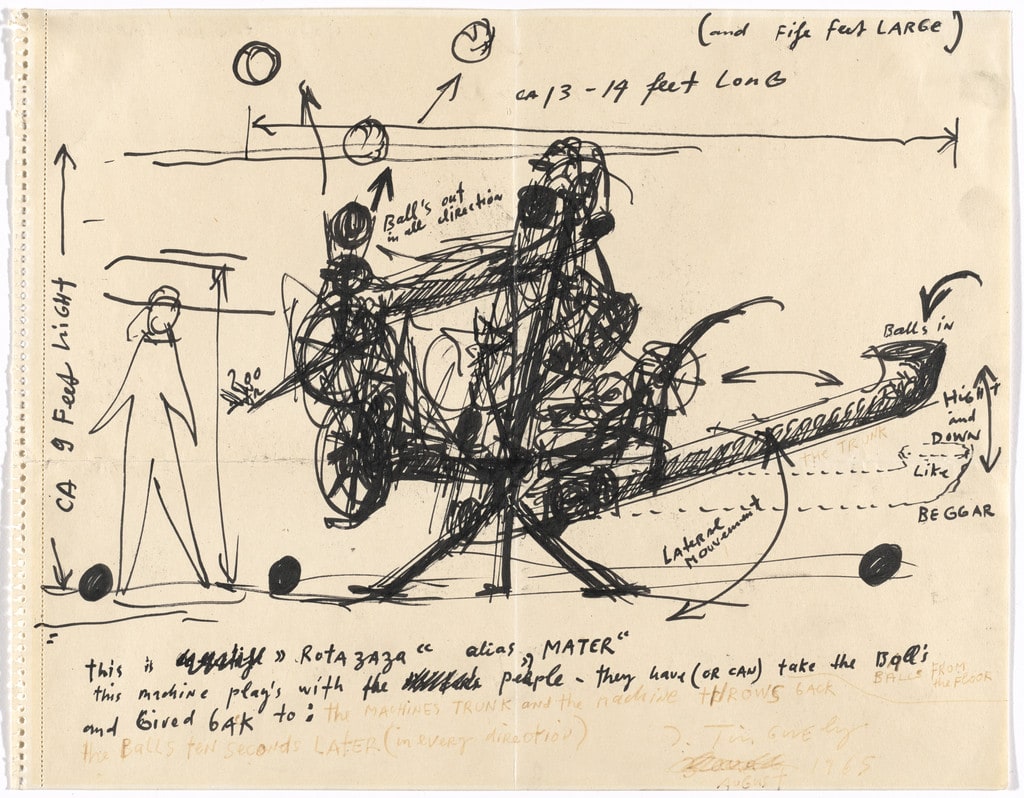 (and Fife feet LARGE)
CA 13 - 14 feet LONG
Ball's out
in all direction
CA 9 Feet hight
Balls in
HigHt
and
DOWN
Like
BEGGAR
THE TRUNK
LATERAL
MOUVEMENT
this is » Rotazaza “ alias „ MATER“
this machine play's with the people - they have (OR CAN) take the Ball's
BALLS FROM
the FLOOR
and Gived bAK to: the MACHINES TRUNK and the machine THROWS back
the Balls ten seconds LATER (in every direction)
J. Tinguely
AUGUST 1965